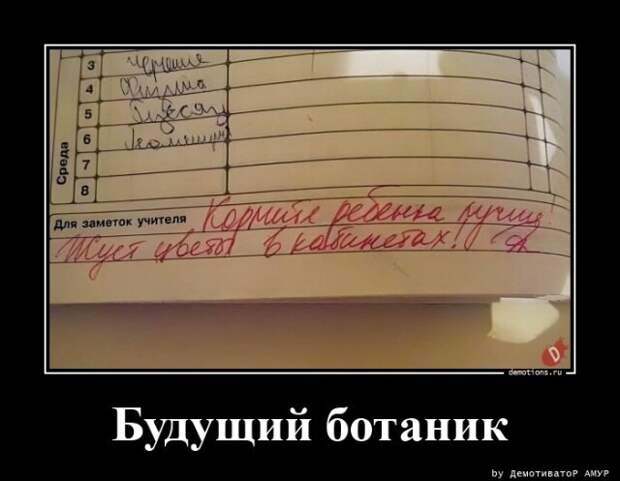 3 Черчение
4 Физика
5
6 Геометрия
7
8
Среда
Для заметок учителя Кормите ребенка лучше!
Жуёт цветы в кабинетах!
D
demotions.ru
Будущий ботаник
by ДемотиватоР АМУР